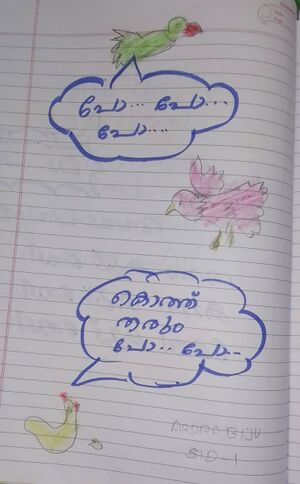 പോ... പോ...
പോ....
കൊത്ത്
തരും
പോ... പോ..
ARDRA BIJU
STD-1